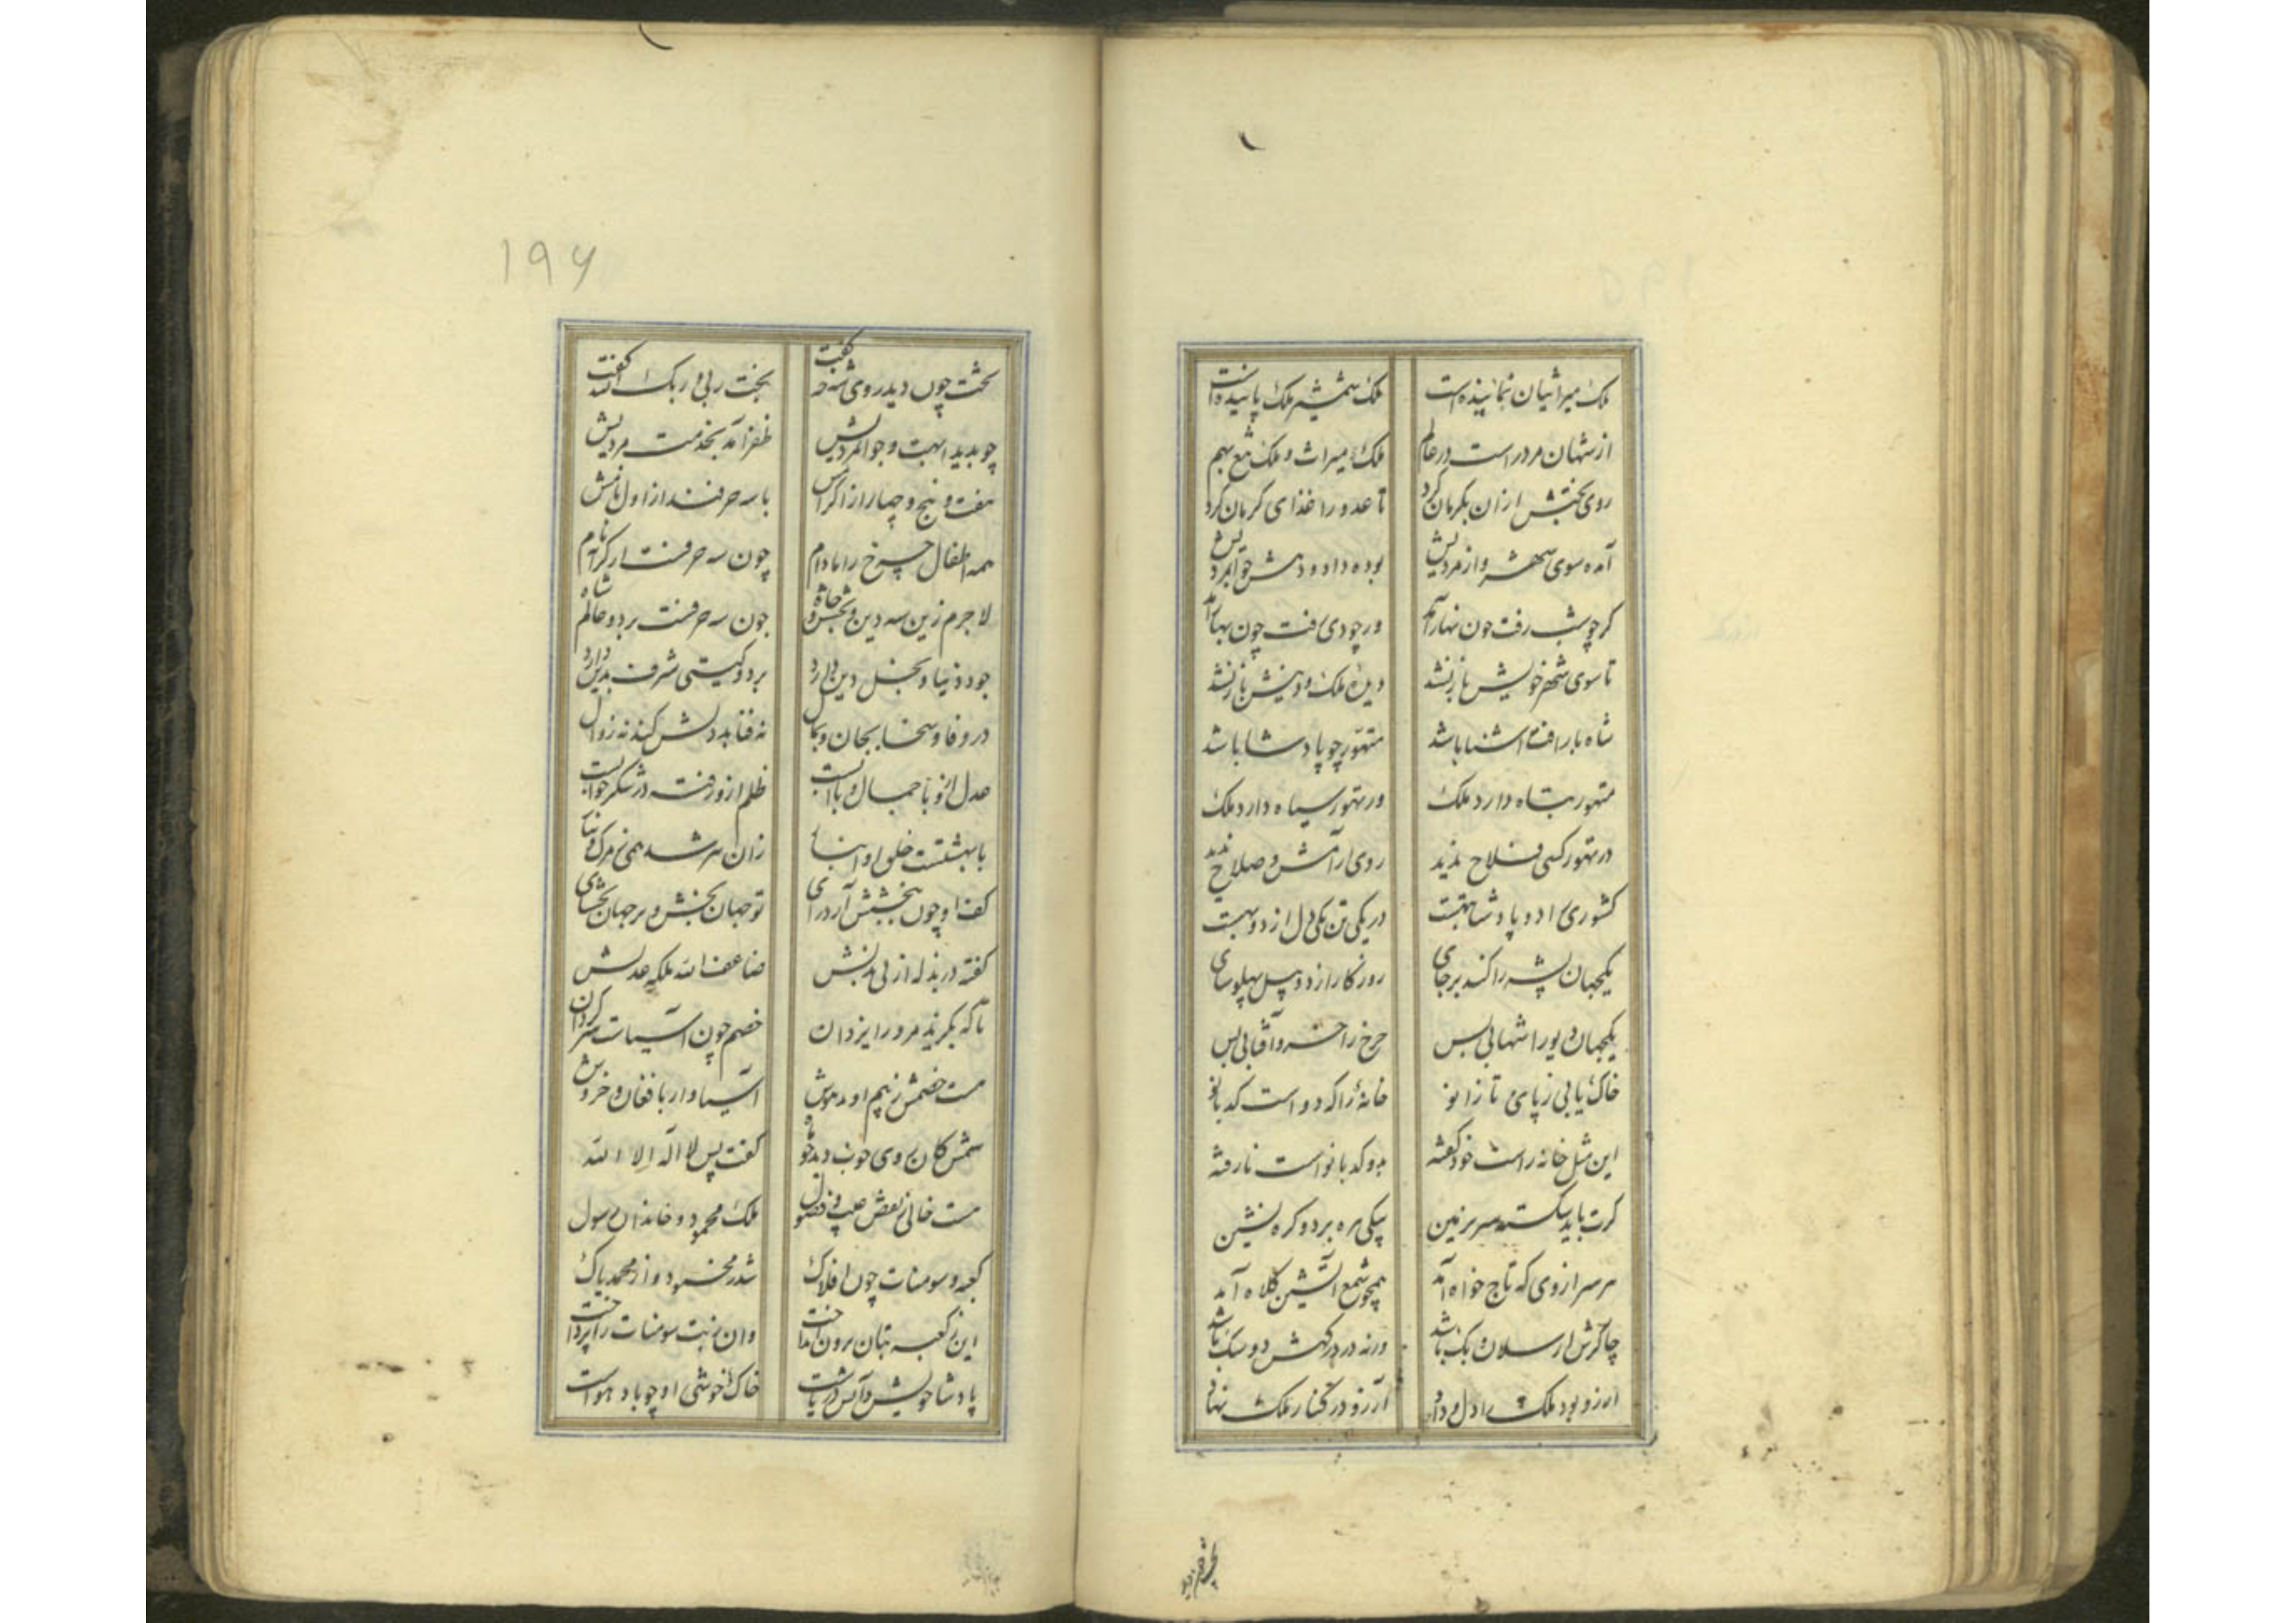 ملک میراثیان نماینده است ملک شمشیر ملک پاینده است
از شهان مر در است در عالم ملک میراث و ملک تیغ بهم
روی بختش ازان بکرمان کرد تا عدو را غذای کرمان کرد
آمده سوی شهر و از مردیش بوده داود وش جوامردیش
کر چو شب رفت چون نهار آمد ور چو دی رفت چون بهار آمد
تا سوی شهر خویش باز نشد دیده ملک و دینش باز نشد
شاه با رافت آشنا باشد متهور چو پادشا باشد
متهور تباه دارد ملک ور تهور سیاه دارد ملک
در تهور کسی فلاح ندید روی آرامش و صلاح ندید
کشوری را دو پادشا بهتست در یکی تن یکی دل از دو بهست
یکجهان پشه را کند بر جای روزگار از دو پیل پهلوسای
یکجهان دیو را شهابی بس چرخ را خسرو آفتابی بس
خاک یابی ز پای تا زانو خانه را که دو است کدبانو
این مثل خانه راست خود گفته بدو کدبانو است نارفته
کرت باید شکسته سر بر زمین پیکی ره برد و کره نشین
هر سر از وی که تاج خواه آمد همچو شمع آتشین کلاه آمد
چاکرش ارسلان و بک باشد ورنه در درگهش دو سک باشد
آرزو بود ملک را دل و داد آرزو در کنار ملک نهاد
۱۹۶
تخت چون دید روی شه حد گفت بخت ربی و ربک الله گفت
چو بدید ابهت و جوامردیش ظفر آمد بخدمت مردیش
هفت و پنج و چهار از اکرامش با سه حرفند از اول نامش
همه اطفال چرخ را مادام چون سه حرفست ار کرام
لاجرم زین سه دین و بخش و جاه چون سه حرفست بر دو عالم شاه
جود دنیا و بخل دین دارد بر دو گیتی شرف بدین دارد
در وفا و سخا بجان و بمال نه فتابد دلش کند نه زوال
عدل ازو با جمال و با آبست ظلم ازو رفته در شکر خوابست
با بهشتست خلق او انباز زان
کف او چون ببخشش آرد رای تو جهان بخش و بر جهان بخشای
گفته در بذله از پی بدلش ضاعف الله ملکه عدلش
تا که بکرید مر ورا یزدان خصم چون آسیاست سر گردان
هست خصمش ز بیم او مدهوش آسیاوار با فغان و خروش
شمس کان روی خوب دید چو ماه گفت پس لا اله الا الله
هست خالی ز نقص و عیب و فضول ملک محمود و خاندان رسول
کعبه و سومنات چون افلاک شد ز محمود و از محمد پاک
این ز کعبه بتان برون انداخت وان ز بت سومنات را پرداخت
پادشا خویش و آتش دریاست خاک خوشی او چو باد هواست